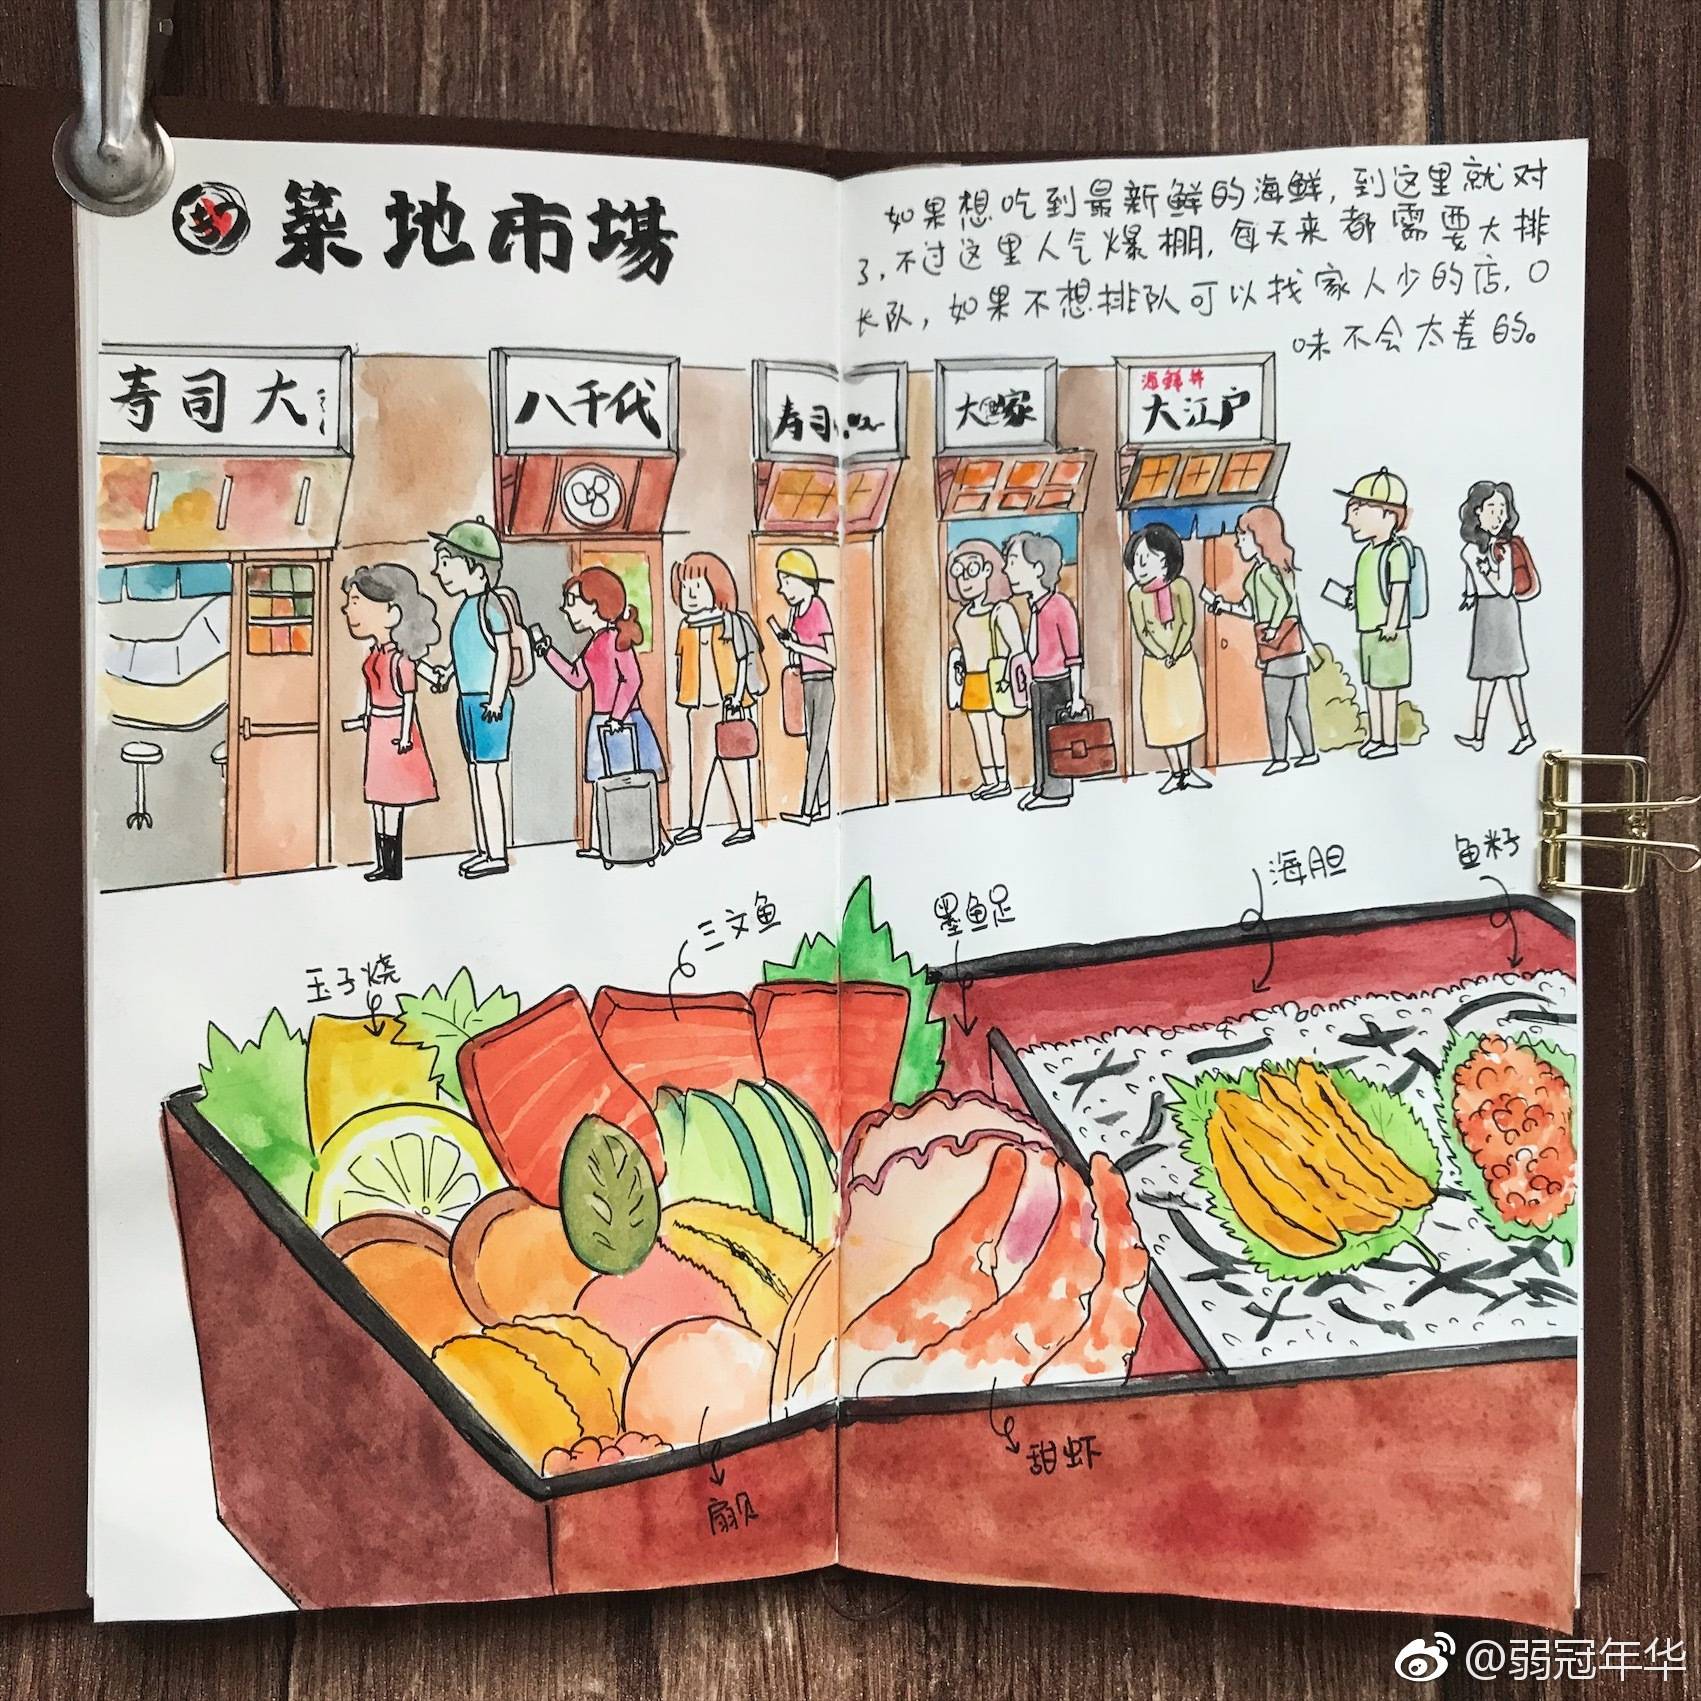 築地市場
如果想吃到最新鲜的海鲜,到这里就对
了,不过这里人气爆棚,每天来都需要大排
长队,如果不想排队可以找家人少的店,口
味不会太差的。
寿司大
八千代
寿司
大
家
海鲜丼
大江户
玉子烧
三文鱼
墨鱼足
海胆
鱼籽
甜虾
扇贝
@弱冠年华